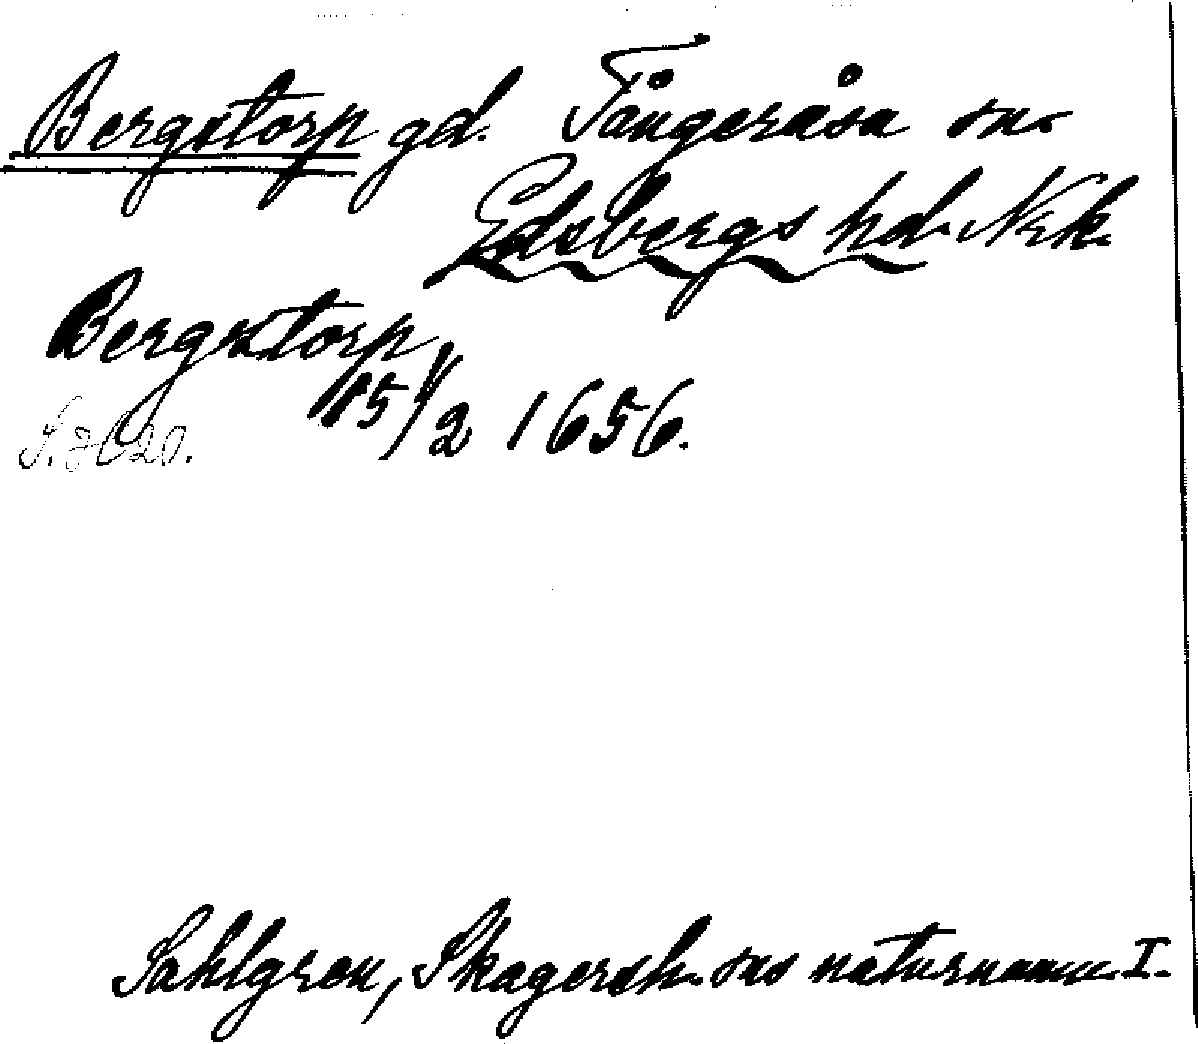 Bergstorp gd. Tångeråsa sn.
Edsbergs hd. Nrk.
Bergstorp
15/2 1656.
Sahlgren, Skagersh. sns naturnamn I.